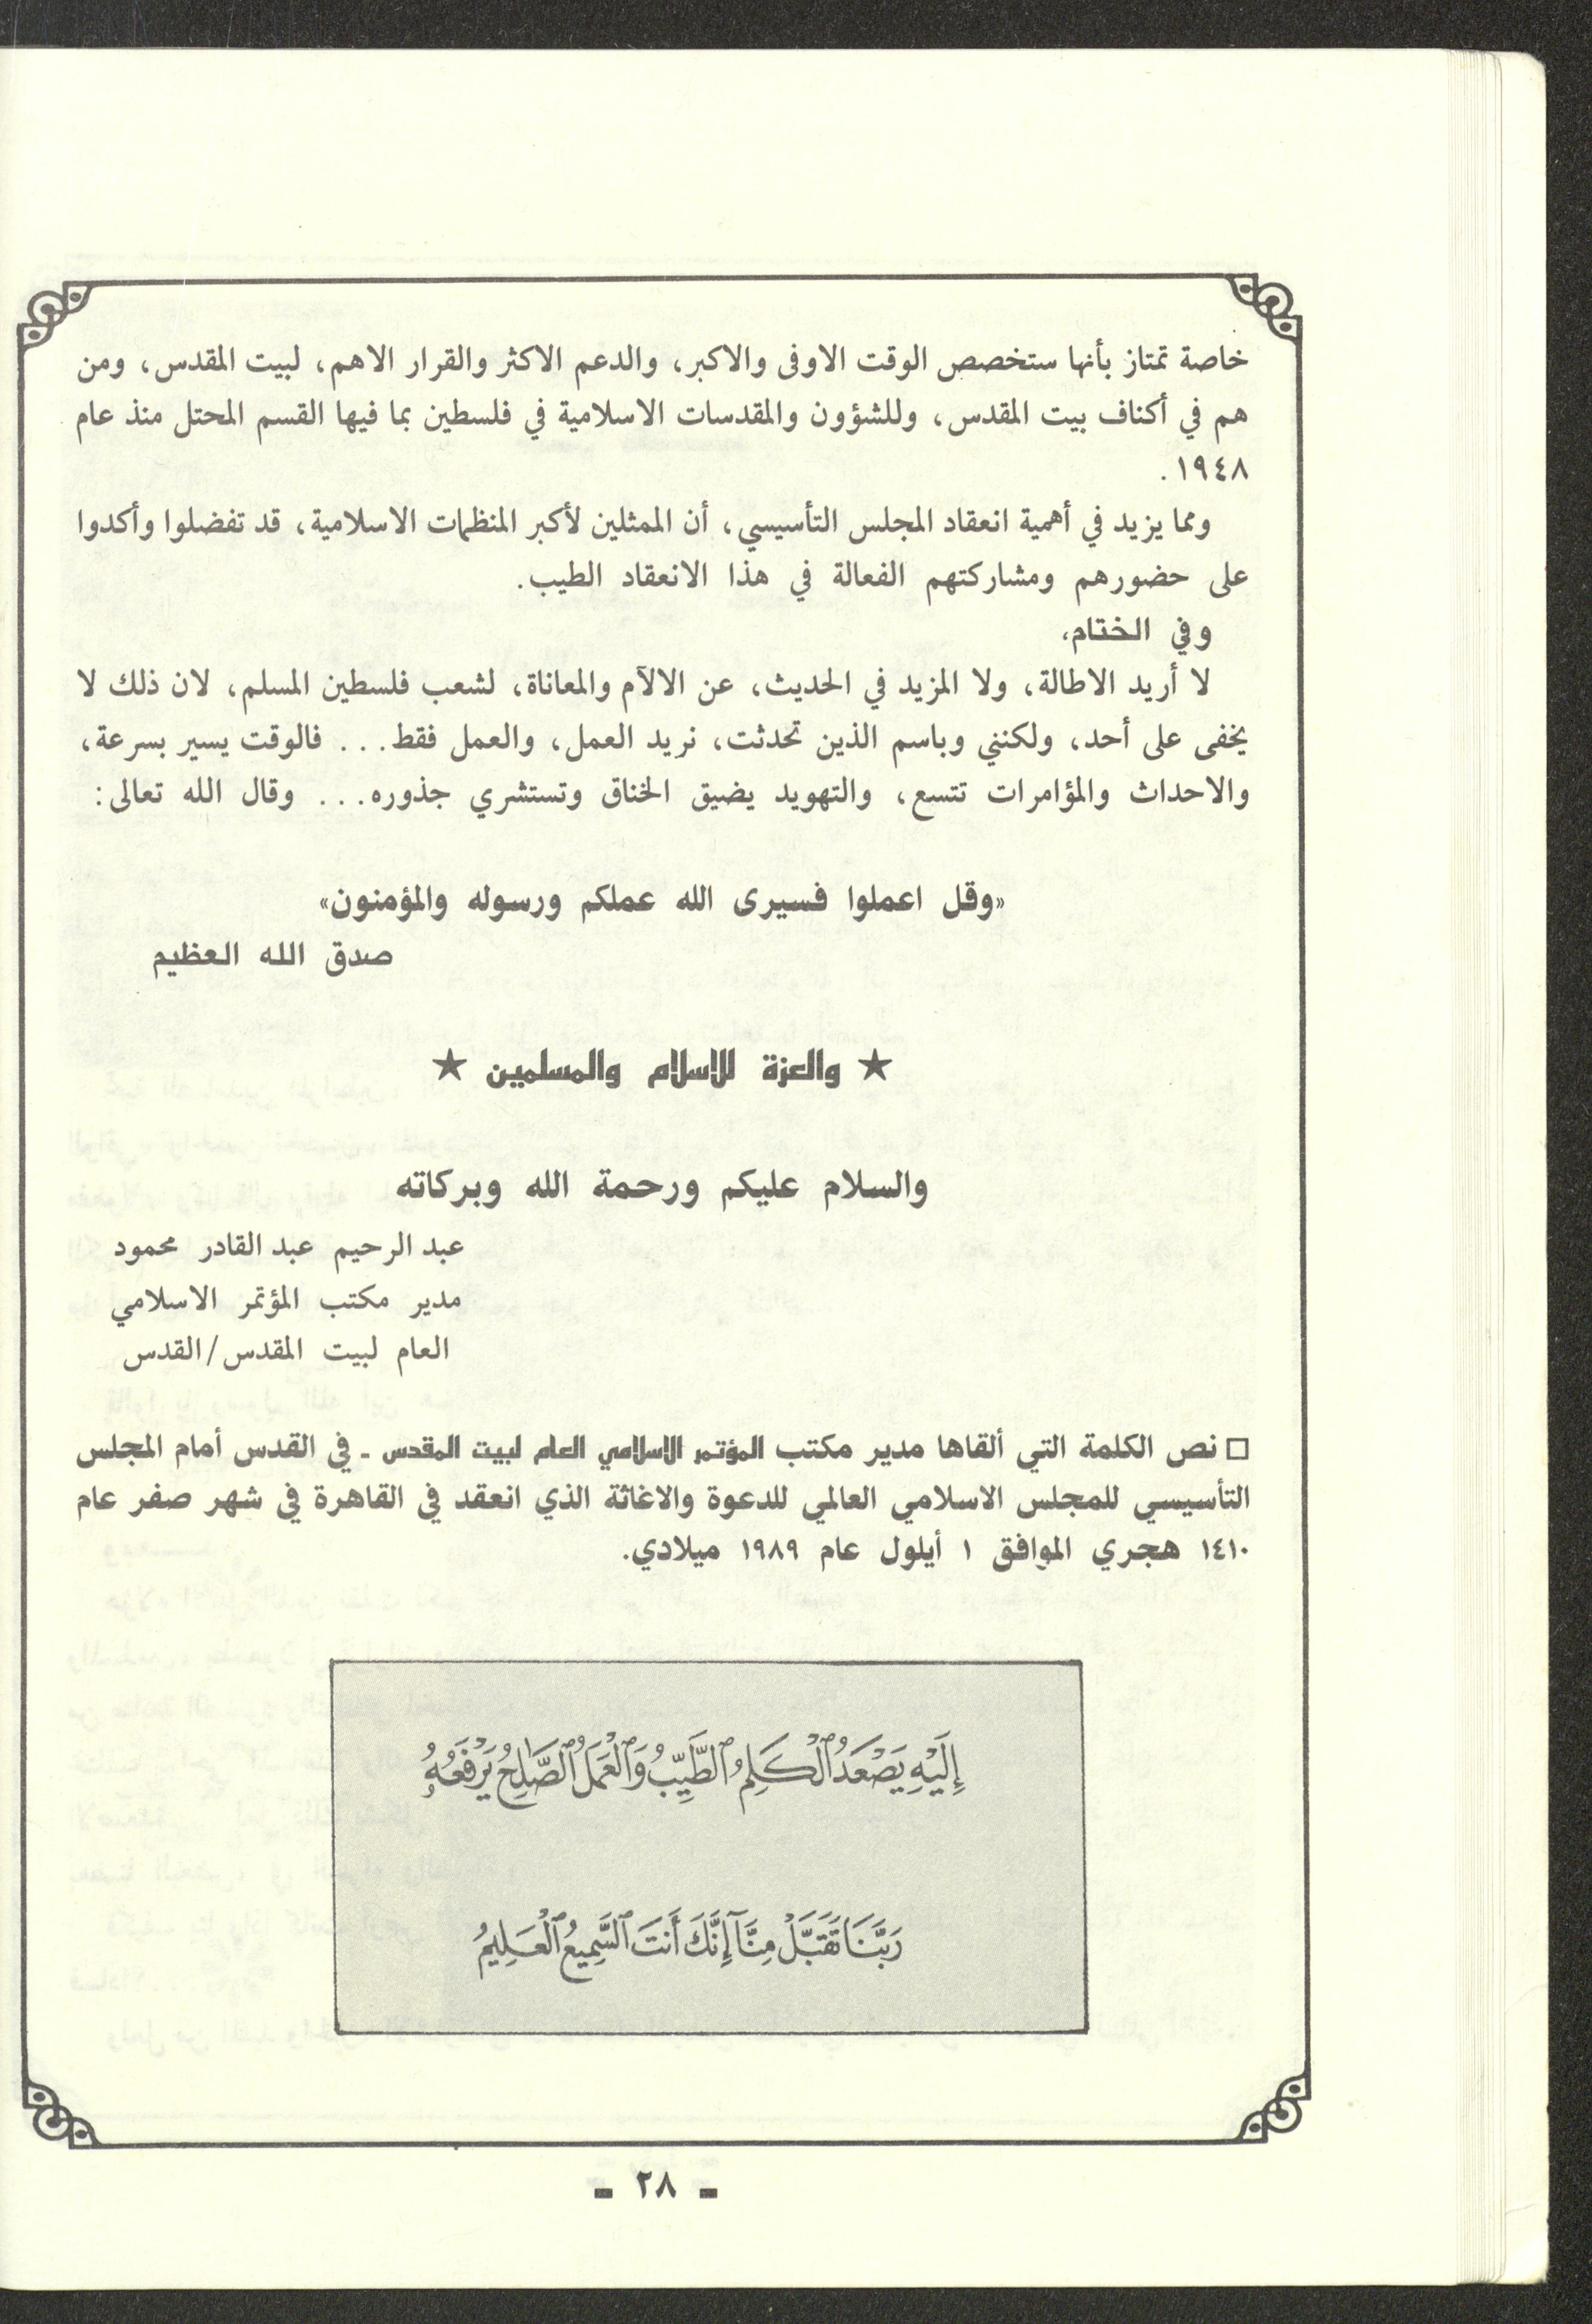 خاصة تمتاز بأنها ستخصص الوقت الاوفى والاكبر، والدعم الاكثر والقرار الاهم، لبيت المقدس، ومن
هم في أكناف بيت المقدس، وللشؤون والمقدسات الاسلامية في فلسطين بما فيها القسم المحتل منذ عام
١٩٤٨ .
ومما يزيد في أهمية انعقاد المجلس التأسيسي، أن الممثلين لأكبر المنظمات الاسلامية، قد تفضلوا وأكدوا
على حضورهم ومشاركتهم الفعالة في هذا الانعقاد الطيب.
وفي الختام،
لا أريد الاطالة، ولا المزيد في الحديث، عن الالآم والمعاناة، لشعب فلسطين المسلم، لان ذلك لا
يخفى على أحد، ولكنني وباسم الذين تحدثت، نريد العمل، والعمل فقط... فالوقت يسير بسرعة،
والاحداث والمؤامرات تتسع، والتهويد يضيق الخناق وتستشري جذوره... وقال الله تعالى:
«وقل اعملوا فسيرى الله عملكم ورسوله والمؤمنون»
صدق الله العظيم
★ والعزة للاسلام والمسلمين ★
والسلام عليكم ورحمة الله وبركاته
عبد الرحيم عبد القادر محمود
مدير مكتب المؤتمر الاسلامي
العام لبيت المقدس/القدس
□ نص الكلمة التي ألقاها مدير مكتب المؤتمر الاسلامي العام لبيت المقدس ـ في القدس أمام المجلس
التأسيسي للمجلس الاسلامي العالمي للدعوة والاغاثة الذي انعقد في القاهرة في شهر صفر عام
١٤١٠ هجري الموافق ١ أيلول عام ١٩٨٩ ميلادي.
إِلَيْهِ يَصْعَدُ ٱلْكَلِمُ ٱلطَّيِّبُ وَٱلْعَمَلُ ٱلصَّٰلِحُ يَرْفَعُهُۥ
رَبَّنَا تَقَبَّلْ مِنَّآ إِنَّكَ أَنتَ ٱلسَّمِيعُ ٱلْعَلِيمُ
- ٢٨ -